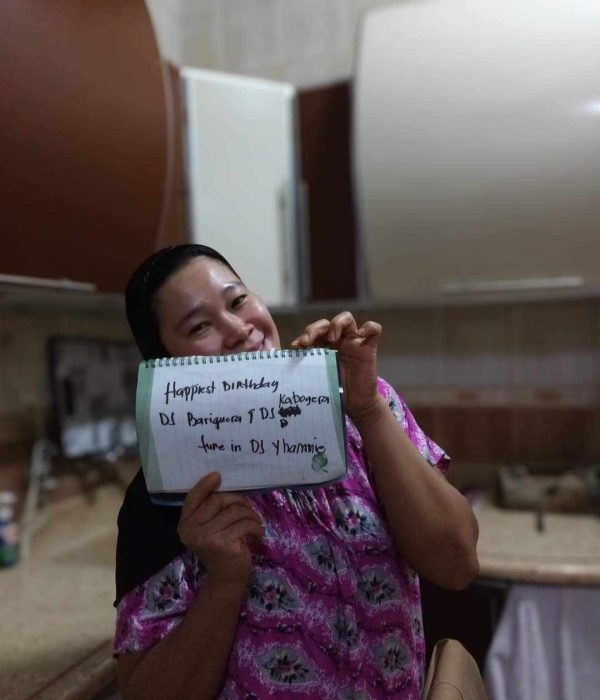 Happiest Birthday
DJ Bariquera & DJ Kabogera
tune in DJ Yhannie